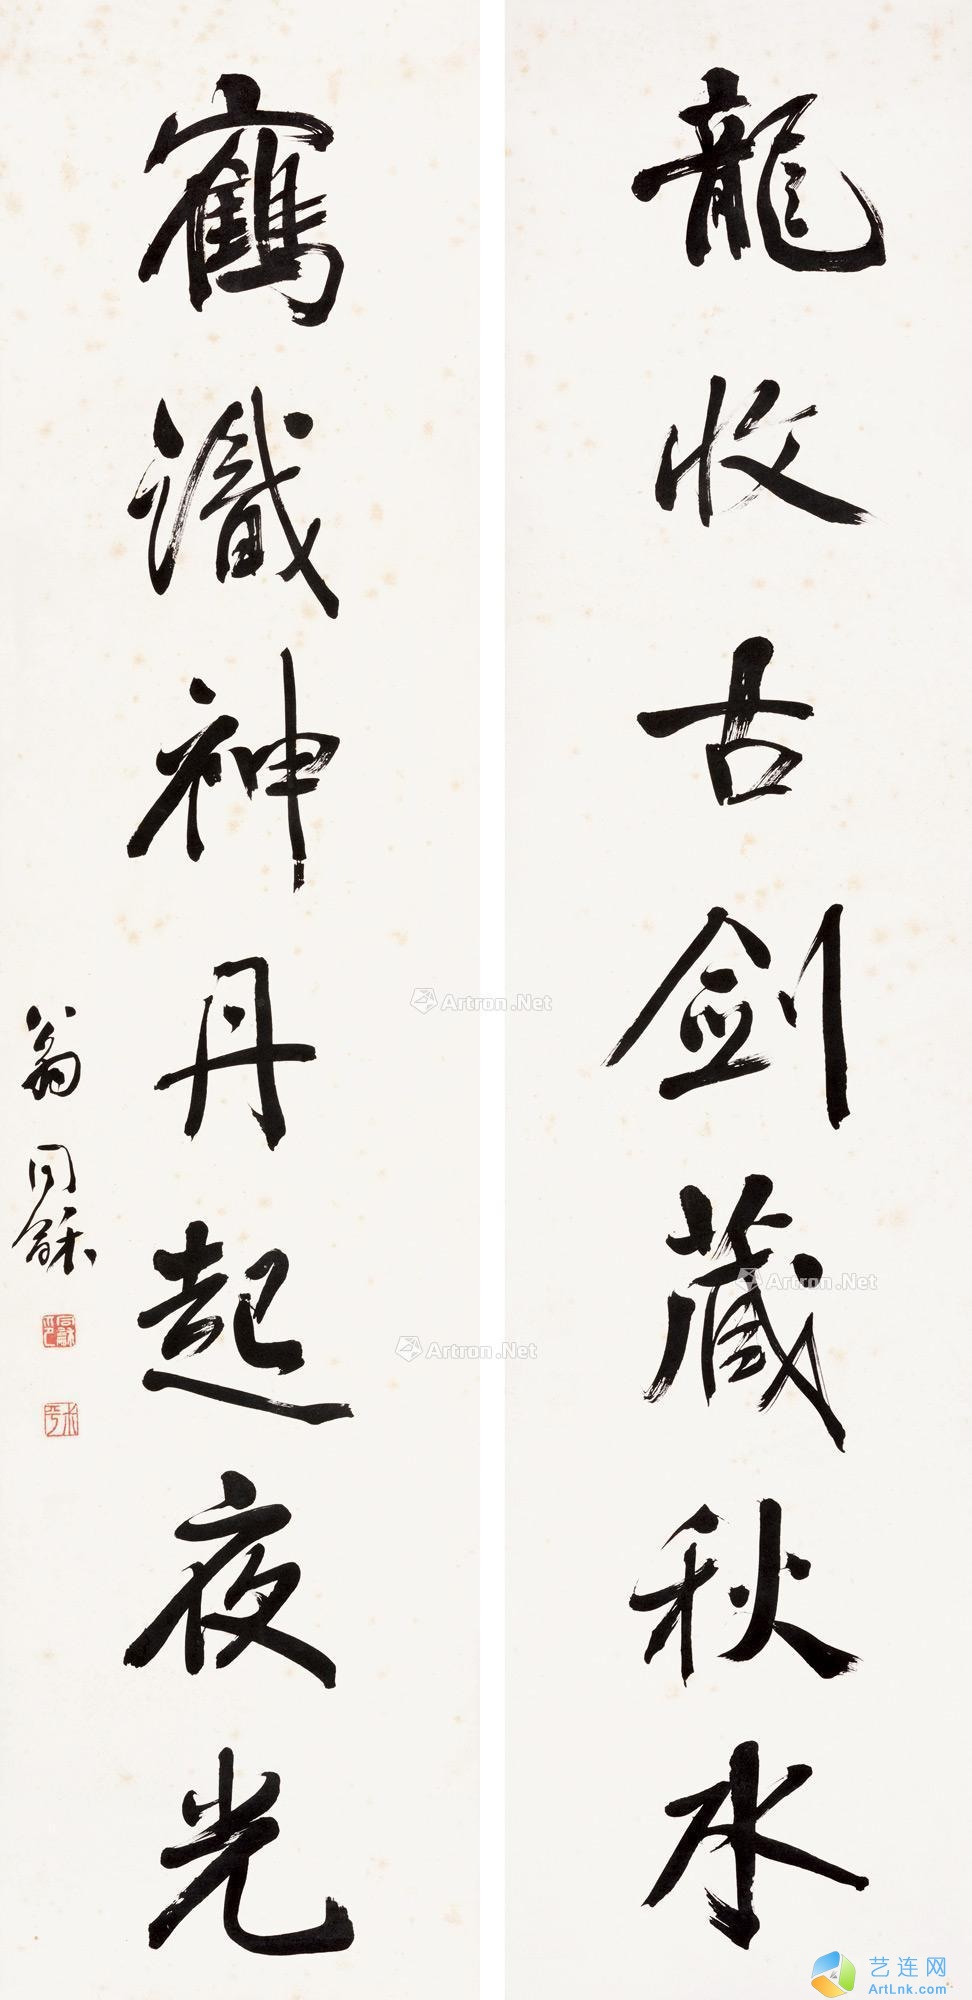 龍收古劍藏秋水
鶴識神丹起夜光
翁同龢
同龢印
叔平
Artron.Net
Artron.Net
Artron.Net
艺连网
ArtLnk.com